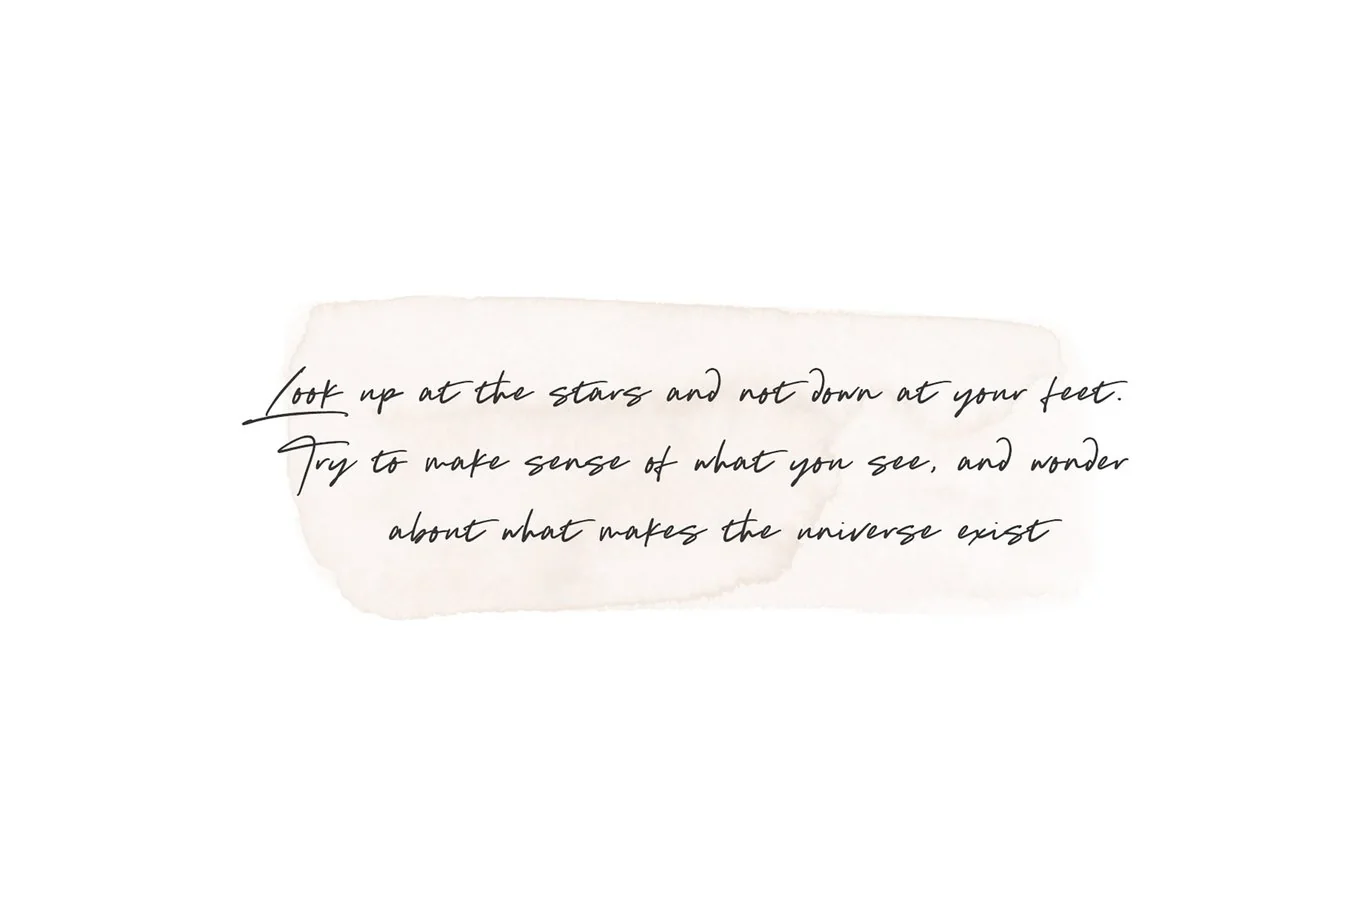 Look up at the stars and not down at your feet.
Try to make sense of what you see, and wonder
about what makes the universe exist